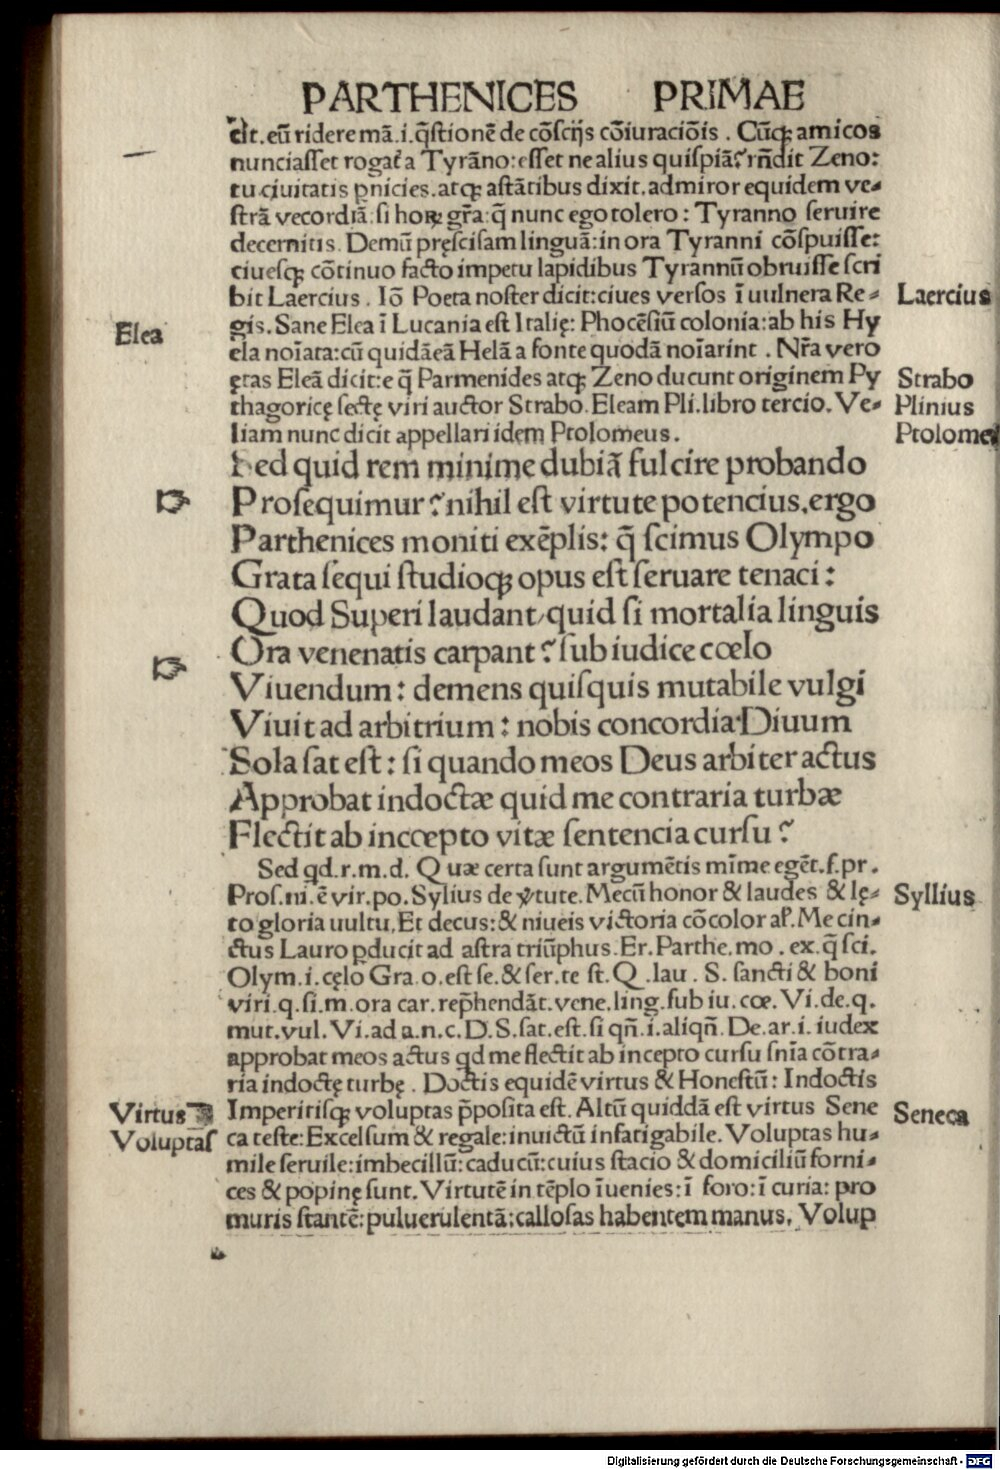 PARTHENICES PRIMAE
cit. eū ridere mā. i. q̄stionē de cōscijs cōiuraciōis . Cūqꝫ amicos
nunciaſſet rogat̄ a Tyrāno: eſſet ne alius quiſpiā? rn̄dit Zeno:
tu ciuitatis ꝑnicies. atqꝫ aſtātibus dixit. admiror equidem ve⸗
ſtrā vecordiā: ſi hoꝝ gr̄a: q̄ nunc ego tolero : Tyranno ſeruire
decernitis. Demū pręſciſam linguā: in ora Tyranni cōſpuiſſe:
ciueſqꝫ cōtinuo facto impetu lapidibus Tyrannū obruiſſe ſcri
bit Laercius . Iō Poeta noſter dicit: ciues verſos ī uulnera Re⸗
Laercius
gis. Sane Elea ī Lucania eſt Italię: Phocēſiū colonia: ab his Hy
Elea
ela noīata: cū quidā eā Helā a fonte quodā noīarint . Nr̄a vero
ętas Eleā dicit: e q̄ Parmenides atqꝫ Zeno ducunt originem Py
Strabo
thagoricę ſectę viri auctor Strabo. Eleam Pli. libro tercio. Ve⸗
Plinius
liam nunc dicit appellari idem Ptolomeus .
Ptolome
Sed quid rem minime dubiā fulcire probando
Proſequimur ? nihil eſt virtute potencius. ergo
Parthenices moniti exēplis: q̄ ſcimus Olympo
Grata ſequi ſtudioqꝫ opus eſt ſeruare tenaci :
Quod Superi laudant/ quid ſi mortalia linguis
Ora venenatis carpant ? ſub iudice cœlo
Viuendum : demens quiſquis mutabile vulgi
Viuit ad arbitrium : nobis concordia Diuum
Sola ſat eſt : ſi quando meos Deus arbiter actus
Approbat indoctæ quid me contraria turbæ
Flectit ab incœpto vitæ ſentencia curſu ?
Sed qd. r. m. d. Quæ certa ſunt argumētis mīme egēt. ſ. pr.
Proſ. ni. ē vir. po. Sylius de v̓tute. Mecū honor & laudes & lę⸗
Syllius
to gloria uultu. Et decus: & niueis victoria cōcolor al̓. Me cin⸗
ctus Lauro ꝑducit ad aſtra triūphus. Er. Parthe. mo . ex. q̄ ſci.
Olym. i. cęlo Gra. o. eſt ſe. & ſer. te ſt. Q. lau . S. ſancti & boni
viri. q. ſi. m. ora car. rep̄hendāt. vene. ling. ſub iu. cœ. Vi. de. q.
mut. vul. Vi. ad a. n. c. D. S. ſat. eſt. ſi qn̄. i. aliqn̄. De. ar. i. iudex
approbat meos actus qd me flectit ab incepto curſu ſnīa cōtra⸗
ria indoctę turbę . Doctis equidē virtus & Honeſtū: Indoctis
Imperitiſqꝫ voluptas p̄poſita eſt. Altū quiddā eſt virtus Sene
Virtus
Seneca
ca teſte: Excelſum & regale: inuictū infatigabile. Voluptas hu⸗
Voluptaſ
mile ſeruile: imbecillū: caducū: cuius ſtacio & domiciliū forni⸗
ces & popinę ſunt. Virtutē in tēplo īuenies: ī foro: ī curia: pro
muris ſtantē: puluerulentā: calloſas habentem manus. Volup
Digitalisierung gefördert durch die Deutsche Forschungsgemeinschaft - DFG